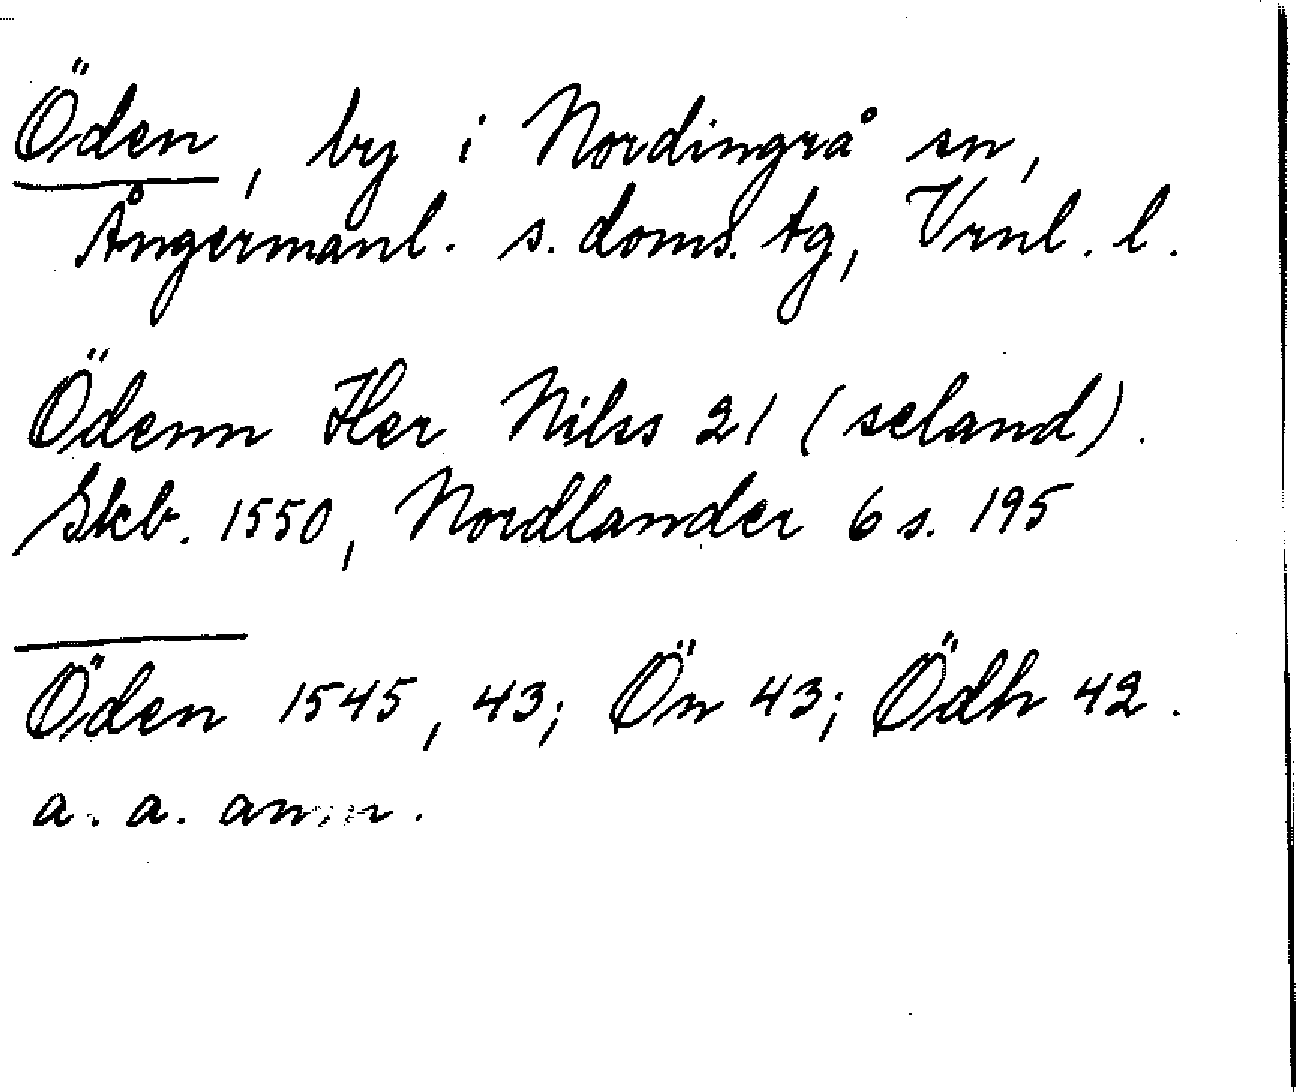 Öden, by i Nordingrå sn,
Ångermanl. s. doms. tg, Vrnl. l.
Ödenn Her Nilss 21 (seland).
Skb. 1550, Nordlander 6 s. 195
Öden 1545, 43; Ön 43; Ödh 42.
a. a. anm.